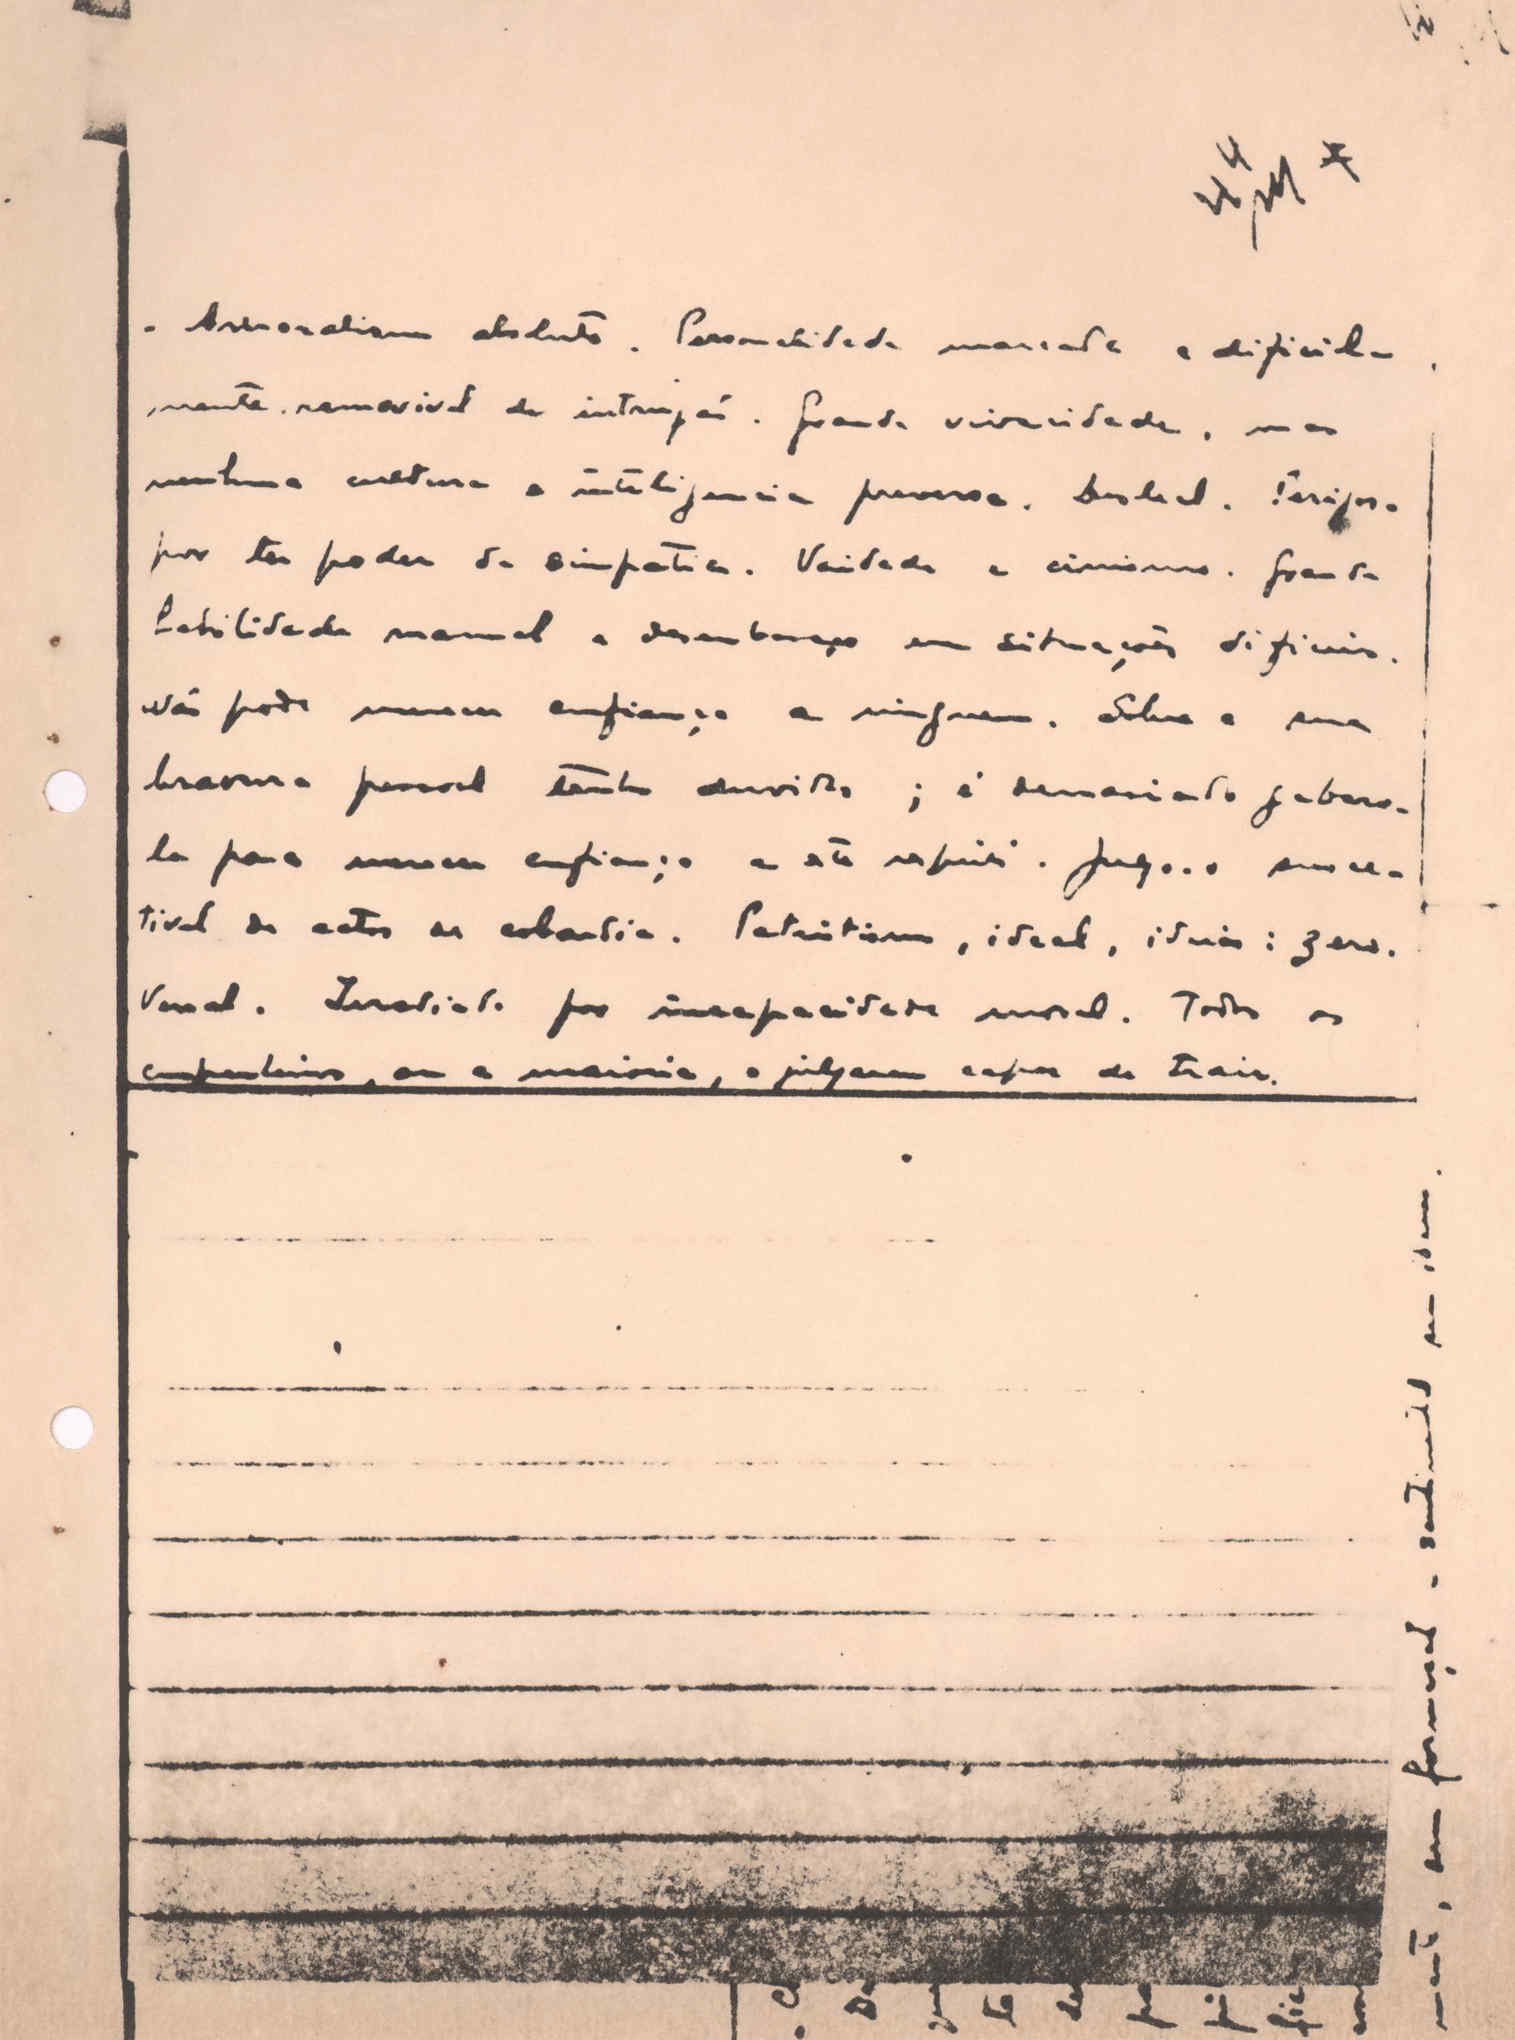 - Amoralismo absoluto. Personalidade marcada e dificil-
mente removivel da intrujice. Grande vivacidade, mas
nenhuma cultura e inteligencia perversa. Desleal. Perigoso
por ter poder de simpatia. Vaidade e cinismo. Grande
habilidade manual e desembaraço em situações dificeis.
Não pode merecer confiança a ninguem. Sobre a sua
bravura pessoal tenho duvidas; é demasiado gabaro-
la para merecer confiança e até respeito. Julgo-o suscep-
tivel de actos de cobardia. Patriotismo, ideal, ideias: zero.
Venal. Irradiado por incapacidade moral. Todos os
companheiros, ou a maioria, o julgavam capaz de trair.
em formação - sentimental sem